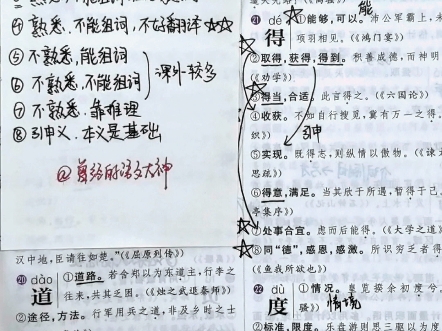 ④熟悉,不能组词,不好翻译☆☆
⑤不熟悉,能组词
⑥不熟悉,不能组词
课外较多
⑦不熟悉,靠推理
⑧引申义,本义是基础
汉中地,臣请往如楚。”(《屈原列传》)
20 dào 道 ①道路。若舍郑以为东道主,行李之
往来,共其乏困。(《烛之武退秦师》)
②途径,方法。
能
21 dé 得 ①能够,可以。沛公军霸上,
项羽相见。(《鸿门宴》)
②取得,获得,得到。积善成德,而神明
《劝学》)
③得当,合适。此言得之。(《六国论》)
④收获。不如自行搜觅,冀有万一之得。
织》)
引申
⑤实现。既得志,则纵情以傲物。(《谏
思疏》)
⑥得意,满足。当其欣于所遇,暂得于己,
亭集序》)
⑦处事合宜。虑而后能得。(《大学之道》
⑧同“德”,感恩,感激。所识穷乏者得
《鱼我所欲也》)
22 dù 度 ①情况。
情境
②标准,限度。